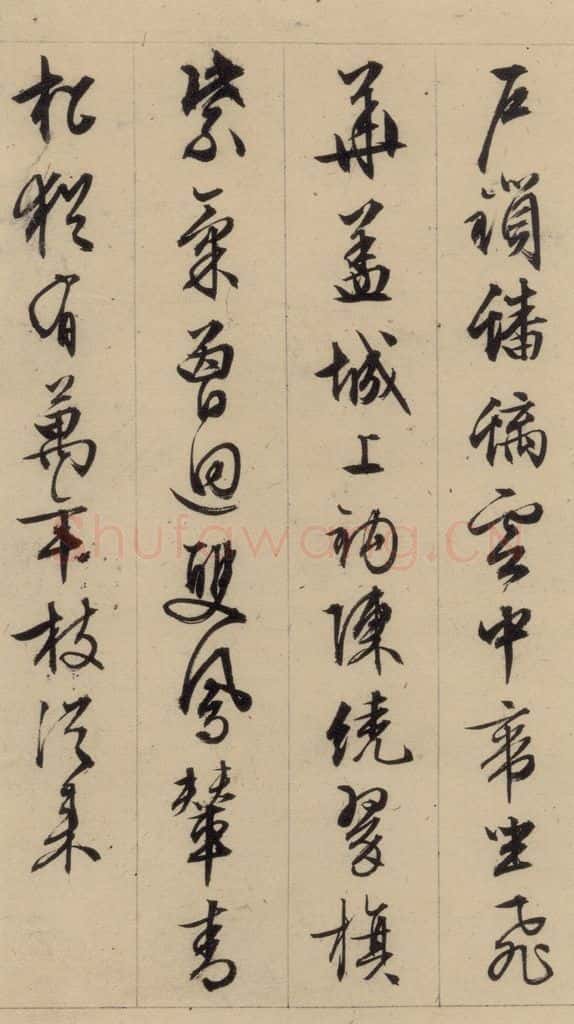 戶鎖蟠螭雲中帝坐飛
華蓋城上鈎陳繞翠旗
紫氣曾迴雙鳳輦青
松猶有萬年枝從来
Shufawang.CN